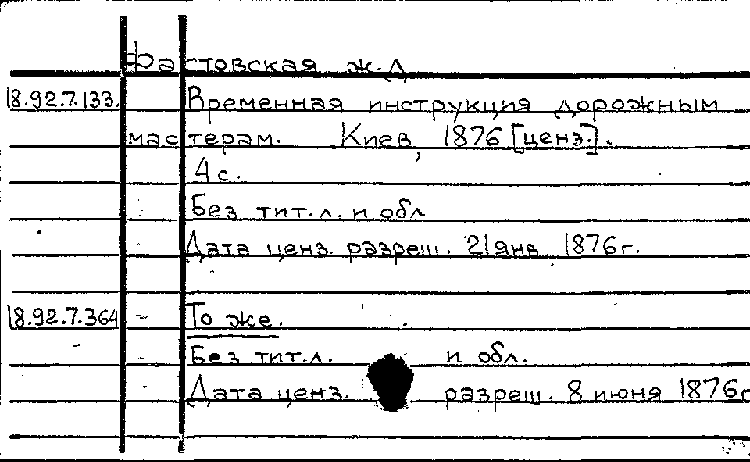 Фастовская ж.д
18.92.7.133. Временная инструкция дорожным
мастерам. Киев, 1876 [ценз.].
4 с.
Без тит.л. и обл
Дата ценз. разреш. 21 янв 1876 г.
18.92.7.364 - То же.
Без тит.л. и обл.
Дата ценз. разреш. 8 июня 1876 г